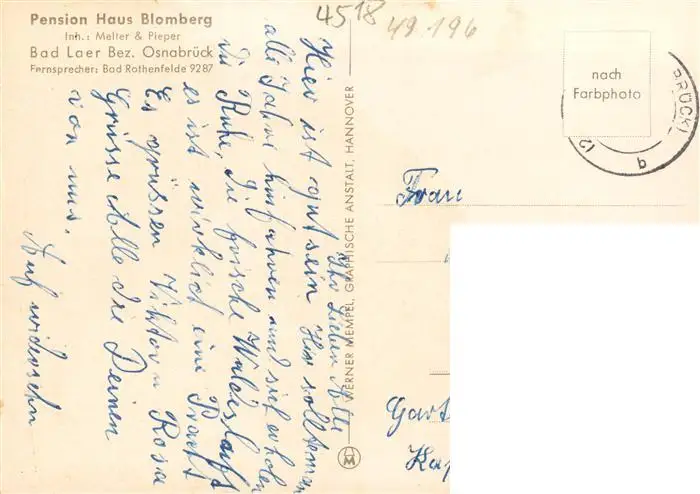 Pension Haus Blomberg
Inh.: Melter & Pieper
Bad Laer Bez. Osnabrück
Fernsprecher: Bad Rothenfelde 9287
4518
49.196
Ihr Lieben Alle
Hier ist gut sein Hier sollte man
alle Jahre hinfahren und sich erholen
die Ruhe, die frische Waldesluft
es ist wirklich eine Pracht
Es grüssen Viktor u Rosa
Grüsse Alle die Deinen
von uns.
Auf widersehn
WERNER MEMPEL, GRAPHISCHE ANSTALT, HANNOVER
nach
Farbphoto
BRÜCK)
q
Frau
Gart
Kap